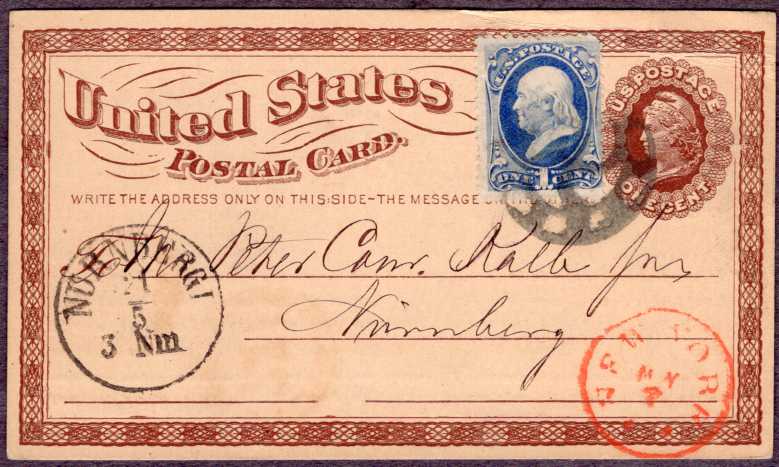 United States
POSTAL CARD.
U.S. POSTAGE
ONE CENT
U.S. POSTAGE
ONE CENT
WRITE THE ADDRESS ONLY ON THIS SIDE-THE MESSAGE ON THE
Peter Conr. Kalb
Nürnberg
NÜRNBERG I
21
5
3 Nm
NEW YORK
MY